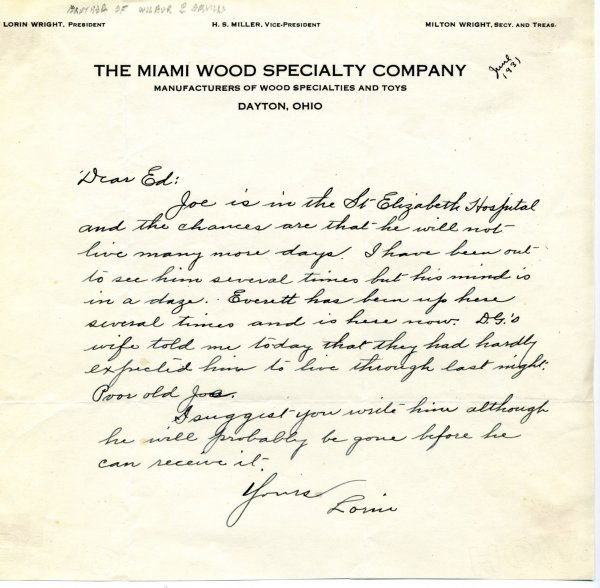 BROTHER OF WILBUR & ORVILLE
LORIN WRIGHT, PRESIDENT H. S. MILLER, VICE-PRESIDENT MILTON WRIGHT, SECY. AND TREAS.
THE MIAMI WOOD SPECIALTY COMPANY
MANUFACTURERS OF WOOD SPECIALTIES AND TOYS
DAYTON, OHIO
June
1931
Dear Ed:
Joe is in the St Elizabeth Hospital
and the chances are that he will not
live many more days. I have been out
to see him several times but his mind is
in a daze. Everett has been up here
several times and is here now. D.G.'s
wife told me today that they had hardly
expected him to live through last night.
Poor old Joe.
I suggest you write him although
he will probably be gone before he
can receive it.
Yours
Lorin